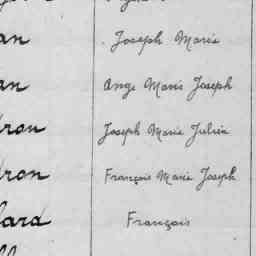 an Joseph Marie
an Ange Marie Joseph
dron Joseph Marie Julien
dron François Marie Joseph
lard François